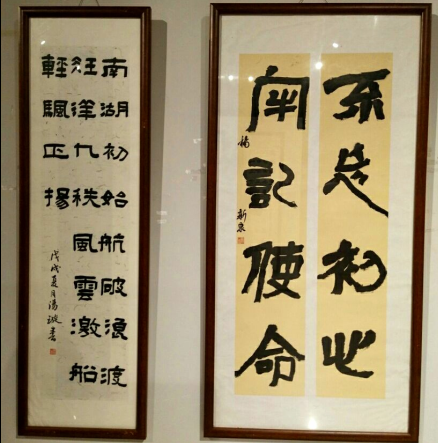 不忘初心
牢記使命
新泉
南湖初始航破浪渡
狂洋九秩風雲激船
輕颿正揚
戊戌夏月湯書